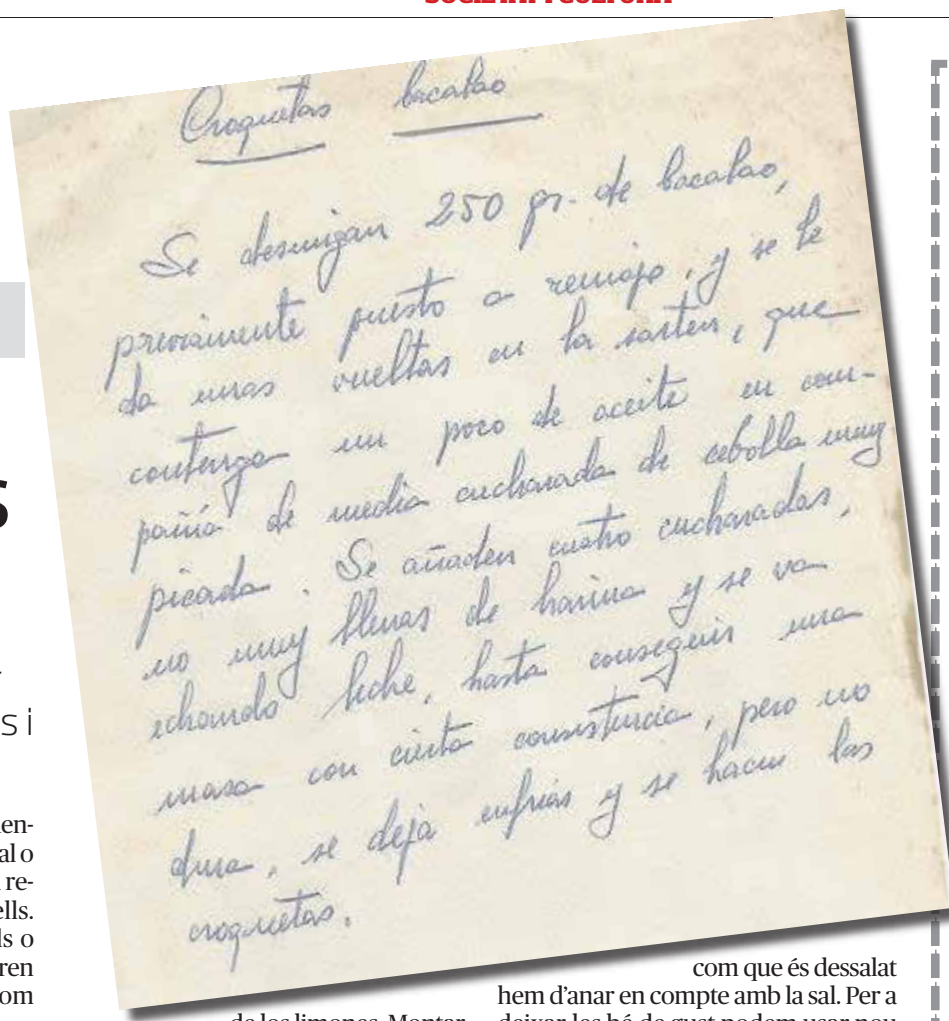 Croquetas bacalao
Se desmigan 250 gr. de bacalao,
previamente puesto a remojo, y se le
da unas vueltas en la sarten, que
contenga un poco de aceite en com-
pañía de media cucharada de cebolla muy
picada. Se añaden cuatro cucharadas,
no muy llenas de harina y se va
echando leche, hasta conseguir una
masa con cierta consistencia, pero no
dura, se deja enfriar y se hacen las
croquetas.
s i
en-
al o
re-
ells.
ls o
ren
om
com que és dessalat
hem d'anar en compte amb la sal. Per a
de los limones. Montar
deixar-les bé de gust podem usar nou